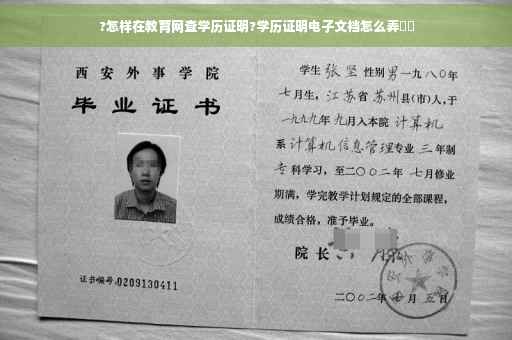 ?怎样在教育网查学历证明?学历证明电子文档怎么弄
西安外事学院
毕业证书
证书编号:0209130411
学生 张坚 性别 男 一九八〇年
七月生,江苏省 苏州县(市)人,于
一九九九年 九月入本院 计算机
系 计算机信息管理专业 三 年制
专科学习,至二〇〇二年 七月修业
期满,学完教学计划规定的全部课程,
成绩合格,准予毕业。
院长
二〇〇二年 七月 五日